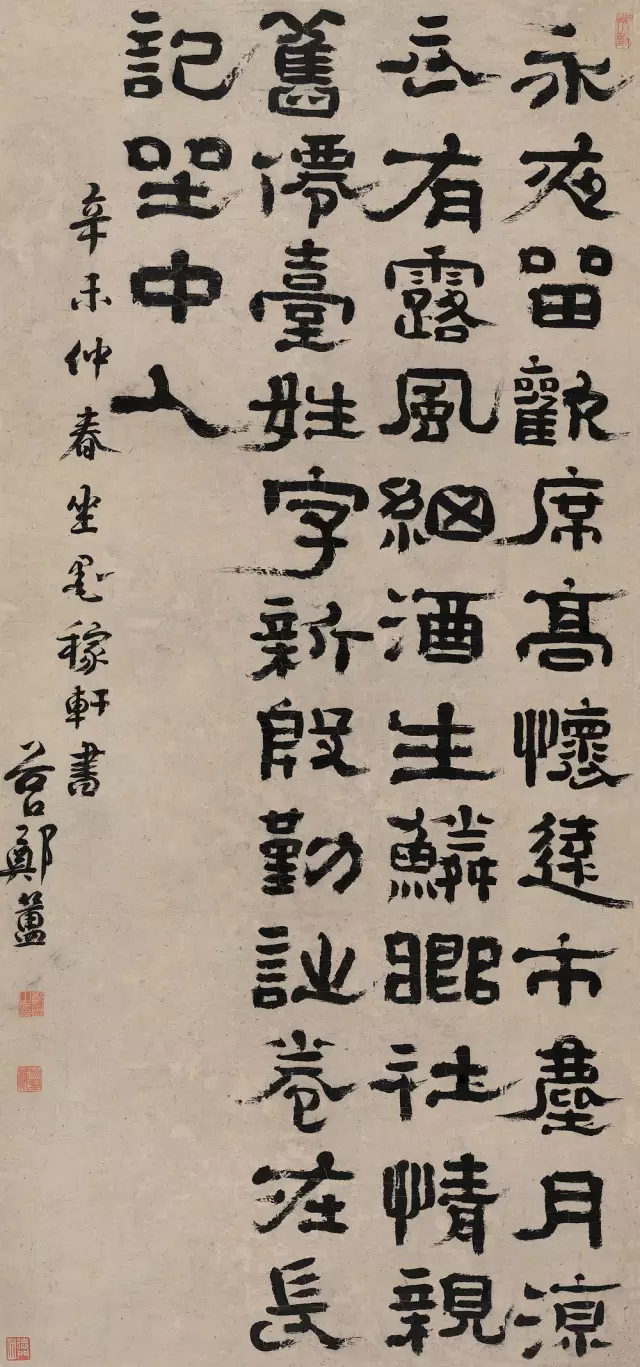 永夜留歡席高懷遠市塵月涼
云有露風細酒生鱗鄉社情親
舊僊臺姓字新殷勤誌卷在長
記坐中人
辛未仲春坐墨稼軒書
谷口鄭簠